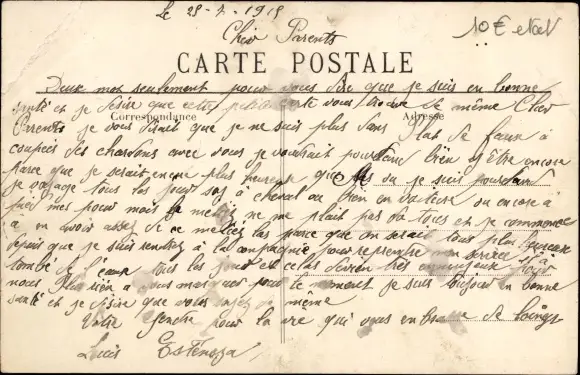 Le 25-7-1915
10 €
Cher Parents
CARTE POSTALE
Deux mot seulement pour vous dire que je suis en bonne
santé et je désire que cette petite carte vous trouve de même Cher
Correspondance
Adresse
Parents je vous dirait que je ne suis plus dans l'état de faux à
coupés des chardons avec vous je voudrait pourtant bien y être encore
parce que je serait encore plus heureux que je suis pourtant
je voyage tous les jours soit à cheval ou bien en voiture ou encore à
pied mes pour moi le métier ne me plait pas du tous et je commence
à en avoir assez de ce métier las parce que on serait tous plus heureux
depuis que je suis rentrez à la compagnie pour reprendre mon service il à
tombé de l'eau tous les jours et cela devien très ennuyeux pour
nous rien à vous marquer pour le moment je suis toujour en bonne
santé et je désire que vous soyez de même
Votre gendre pour la vie qui vous embrasse de loing
Louis